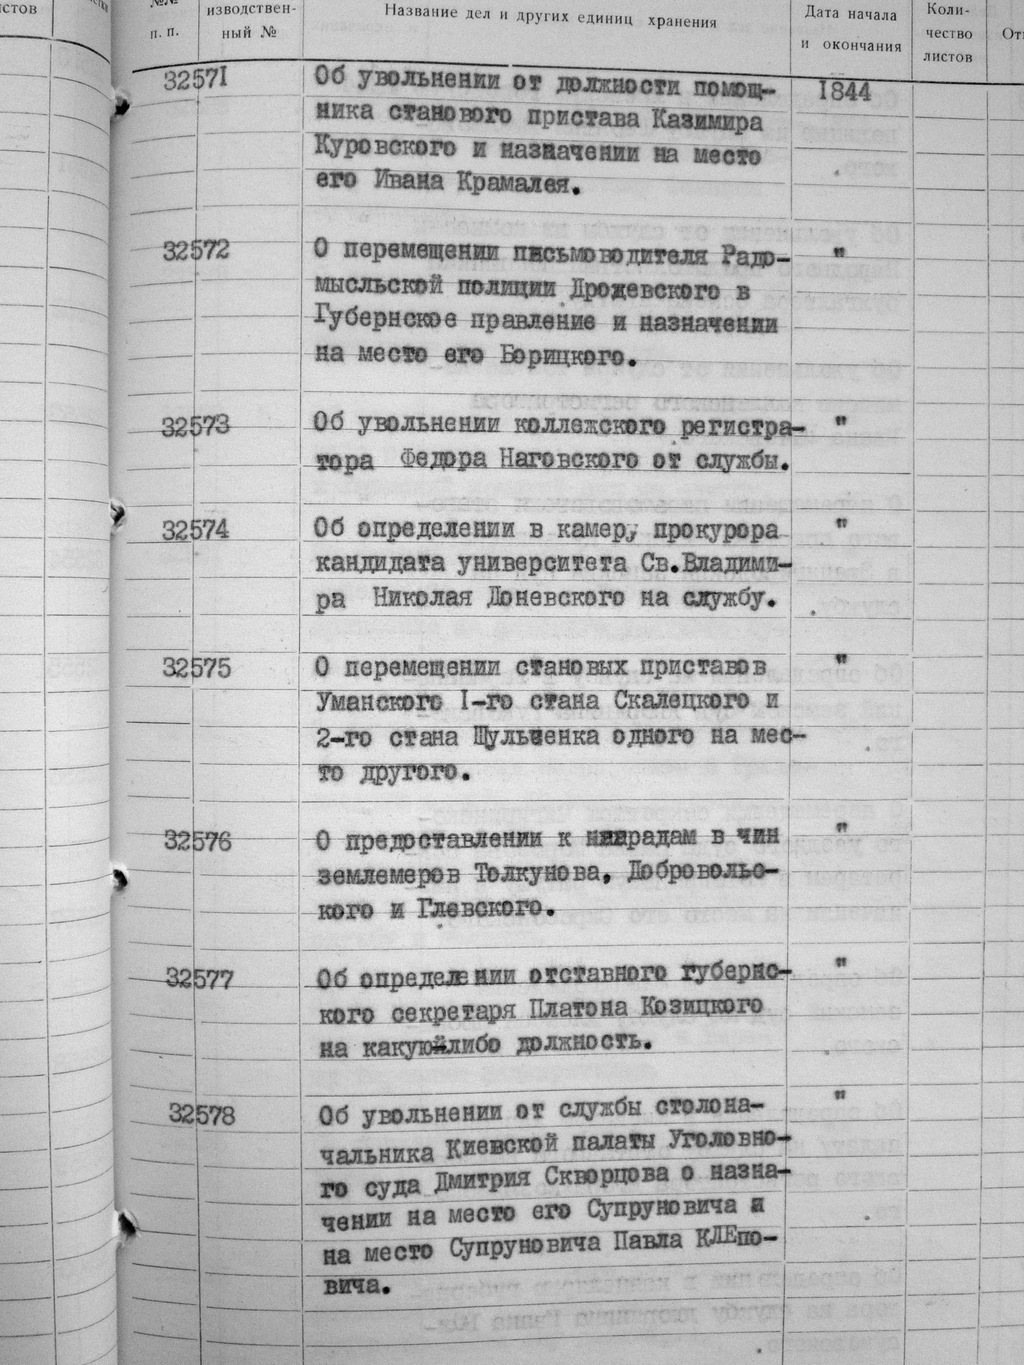 №№
п. п.
изводствен-
ный №
Название дел и других единиц хранения
Дата начала
и окончания
Коли-
чество
листов
32571 Об увольнении от должности помощ- 1844
ника станового пристава Казимира
Куровского и назначении на место
его Ивана Крамалея.
32572 О перемещении письмоводителя Радо- "
мысльской полиции Дродевского в
Губернское правление и назначении
на место его Борицкого.
32573 Об увольнении коллежского регистра- "
тора Федора Наговского от службы.
32574 Об определении в камеру прокурора "
кандидата университета Св.Владими-
ра Николая Доневского на службу.
32575 О перемещении становых приставов "
Уманского I-го стана Скалецкого и
2-го стана Шульченка одного на мес-
то другого.
32576 О предоставлении к наградам в чин "
землемеров Толкунова, Добровольс-
кого и Глевского.
32577 Об определении отставного губернс- "
кого секретаря Платона Козицкого
на какую-либо должность.
32578 Об увольнении от службы столона- "
чальника Киевской палаты Уголовно-
го суда Дмитрия Скворцова о назна-
чении на место его Супруновича и
на место Супруновича Павла КЛЕпо-
вича.